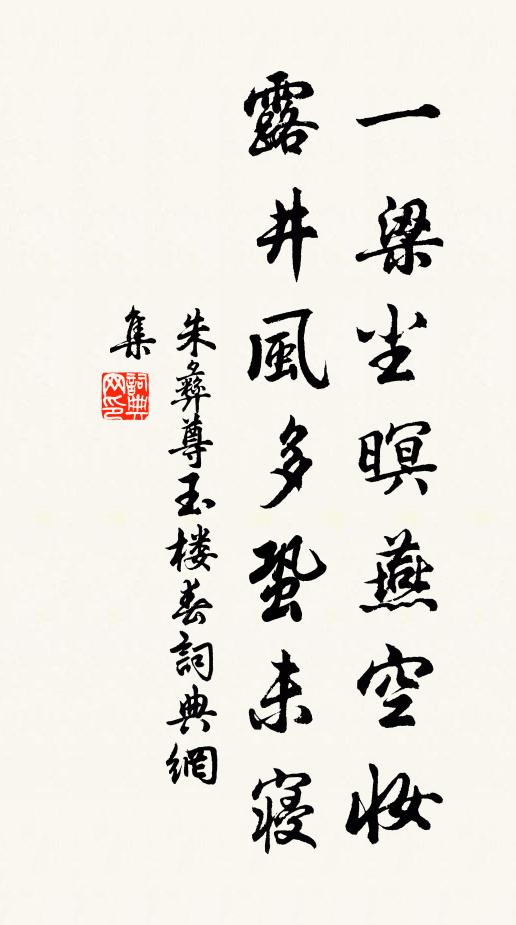 一梁尘暝燕空妆
露井風多蛩未寝
朱彝尊玉楼春詞典網
集
詞典网印